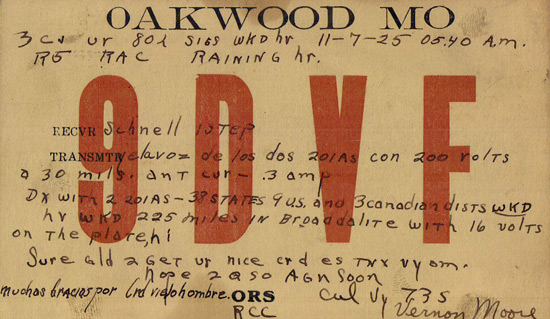 OAKWOOD MO
3CJ ur 80l sigs WKD hr 11-7-25 05.40 A.M.
R5 RAC RAINING hr.
9DVF
RECVR Schnell 1 STEP
TRANSMTR de los dos 201As con 200 volts
a 30 mils. ant cur- .3 amp
DX with 2 201As - 38 STATES 9 U.S. and 3 canadian dists WKD
hv WKD 225 miles in Broad dalite with 16 volts
on the plate, hi
Sure gld 2 get ur nice crd es tnx vy om.
hope 2 qso AGN Soon
muchas gracias por crd viejo hombre. ORS Cul Vy 73s
RCC Vernon Moore